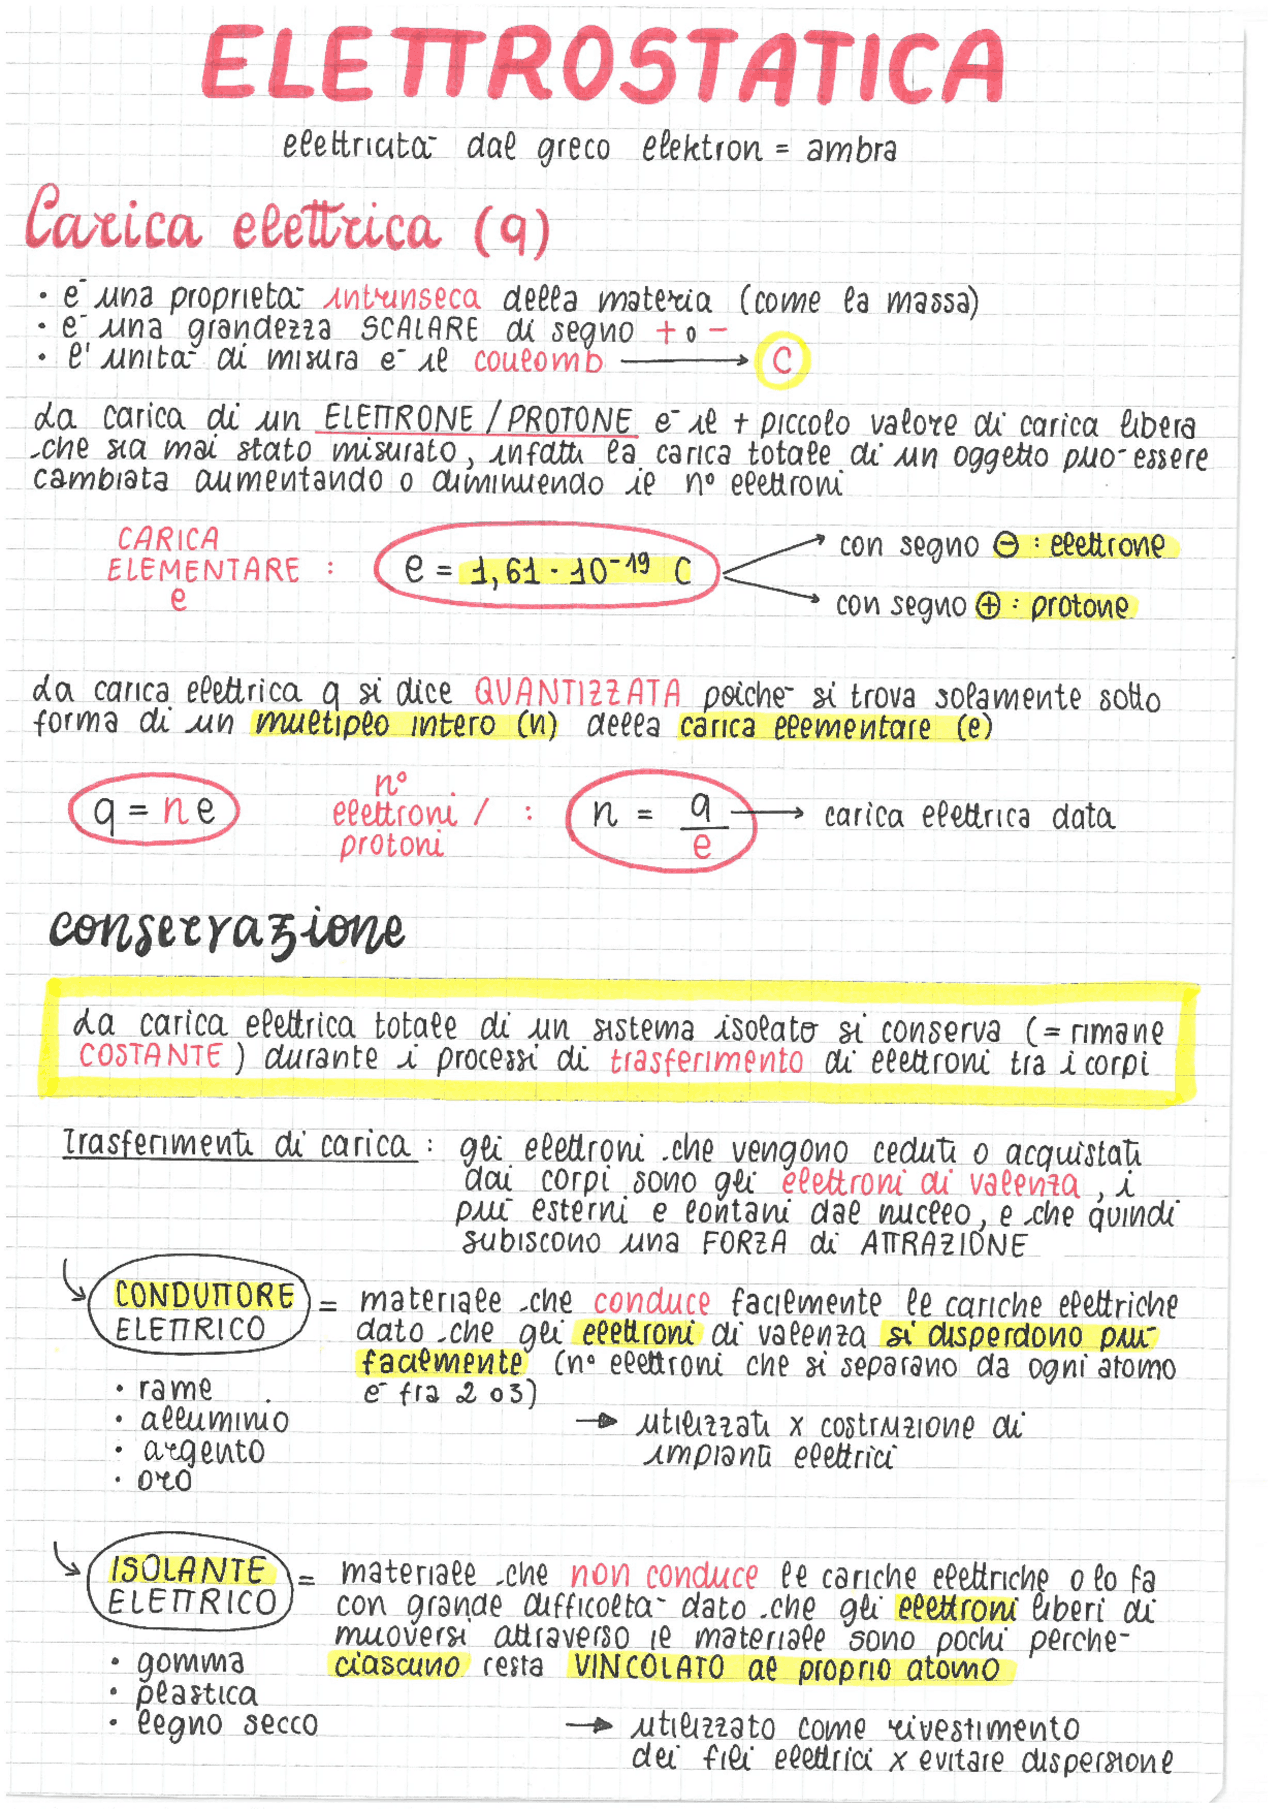 ELETTROSTATICA
elettricità dal greco elektron = ambra
Carica elettrica (q)
• è una proprietà intrinseca della materia (come la massa)
• è una grandezza SCALARE di segno + o -
• l'unità di misura è il coulomb → C
La carica di un ELETTRONE / PROTONE è il + piccolo valore di carica libera
che sia mai stato misurato, infatti la carica totale di un oggetto può essere
cambiata aumentando o diminuendo il n° elettroni
CARICA
ELEMENTARE :
e
e = 1,61 · 10⁻¹⁹ C
con segno ⊖ : elettrone
con segno ⊕ : protone
La carica elettrica q si dice QUANTIZZATA poichè si trova solamente sotto
forma di un multiplo intero (n) della carica elementare (e)
q = ne
n°
elettroni / :
protoni
n = q/e → carica elettrica data
conservazione
La carica elettrica totale di un sistema isolato si conserva (= rimane
COSTANTE) durante i processi di trasferimento di elettroni tra i corpi
Trasferimenti di carica : gli elettroni che vengono ceduti o acquistati
dai corpi sono gli elettroni di valenza, i
più esterni e lontani dal nucleo, e che quindi
subiscono una FORZA di ATTRAZIONE
CONDUTTORE
ELETTRICO
= materiale che conduce facilmente le cariche elettriche
dato che gli elettroni di valenza si disperdono più
facilmente (n° elettroni che si separano da ogni atomo
è fra 2 o 3)
• rame
• alluminio
• argento
• oro
→ utilizzati x costruzione di
impianti elettrici
ISOLANTE
ELETTRICO
= materiale che non conduce le cariche elettriche o lo fa
con grande difficoltà dato che gli elettroni liberi di
muoversi attraverso il materiale sono pochi perchè
ciascuno resta VINCOLATO al proprio atomo
• gomma
• plastica
• legno secco
→ utilizzato come rivestimento
dei fili elettrici x evitare dispersione